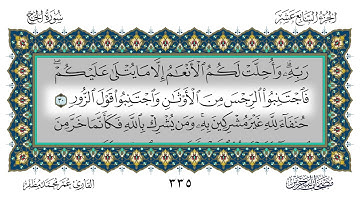 الجزء السابع عشر
سورة الحج
رَبِّهِۦۗ وَأُحِلَّتۡ لَكُمُ ٱلۡأَنۡعَٰمُ إِلَّا مَا يُتۡلَىٰ عَلَيۡكُمۡۖ
فَٱجۡتَنِبُواْ ٱلرِّجۡسَ مِنَ ٱلۡأَوۡثَٰنِ وَٱجۡتَنِبُواْ قَوۡلَ ٱلزُّورِ ٣٠
حُنَفَآءَ لِلَّهِ غَيۡرَ مُشۡرِكِينَ بِهِۦۚ وَمَن يُشۡرِكۡ بِٱللَّهِ فَكَأَنَّمَا خَرَّ مِنَ
٣٣٥